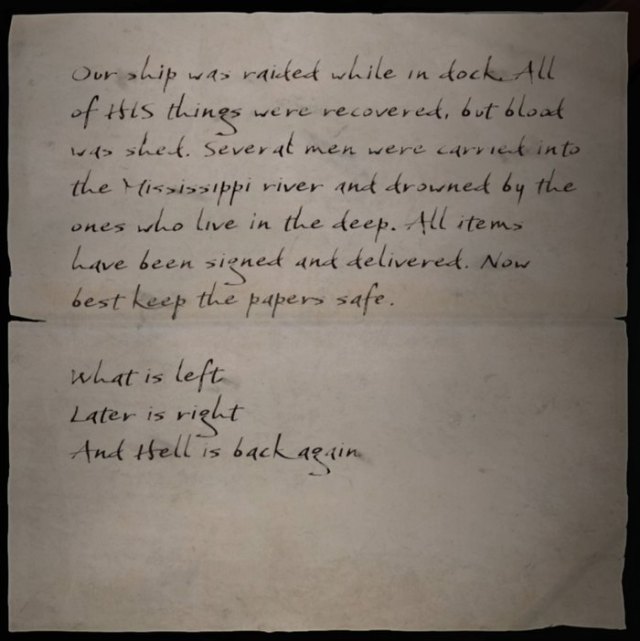 Our ship was raided while in dock. All
of HIS things were recovered, but blood
was shed. Several men were carried into
the Mississippi river and drowned by the
ones who live in the deep. All items
have been signed and delivered. Now
best keep the papers safe.
What is left
Later is right
And Hell is back again